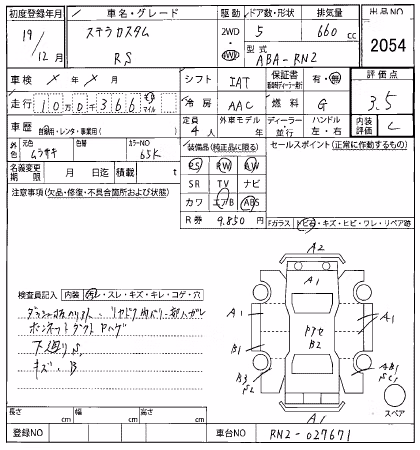 初度登録年月 車名・グレード 駆動 ドア数・形状 排気量 出品NO
19/12月 ステラカスタム RS 2WD 4WD 5 660cc 2054
型式 ABA-RN2
車検 × 年 × 月 シフト IAT 保証書 有・無 評価点
走行 10万0千366 キロ マイル 冷房 AAC 燃料 G 3.5
車歴 自家用・レンタ・事業用( ) 定員 4人 外車モデル 年 ディーラー・並行 ハンドル 左・右 内装評価 C
外色 元色 ムラサキ 色替 カラーNO 65K 装備品(純正品に限る) セールスポイント(正常に作動するもの)
名義変更期限 月 日迄 積載 t PS PW AW
注意事項(欠品・修復・不具合箇所および状態) SR TV ナビ
カワ エアB ABS
R券 9.850円 Fガラス トビ石・キズ・ヒビ・ワレ・リペア跡
A2
A1
検査員記入 内装 汚レ・スレ・キズ・キレ・コゲ・穴
A1 A1
ボンネットダクトハゲ
下廻りS
キズ、B
B1 B2
B3 A1
スペア
A1
長さ cm 幅 cm 高さ cm
登録NO 車台NO RN2-027671